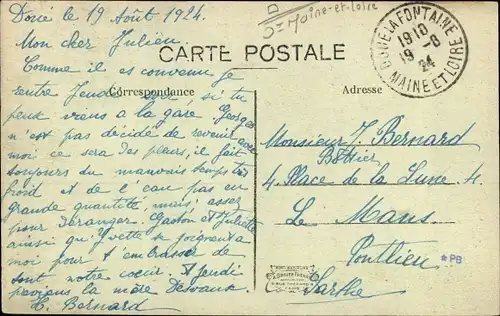 Doué le 19 Août 1924.
Mon cher Julien
CARTE POSTALE
Correspondance
Comme il es convenu je
rentre Jeudi soir, si tu
peux viens a la gare Georges
n'est pas décidé de revenir avec
moi ce sera des pleurs, il fait
toujours du mauvais temps très
froid et de l'eau pas en
grande quantité mais assez
pour déranger. Gaston et Juliette
ainsi que Yvette se joignent a
moi pour t'embrasser de
tout notre cœur. A Jeudi
la mère
L. Bernard
D= Maine-et-Loire
DOUE LA FONTAINE
19 10
19 -8
24
MAINE ET LOIRE
Adresse
Monsieur J. Bernard
Bottier
4. Place de la Lune. 4.
Le Mans
Pontlieu
Sarthe
*PB